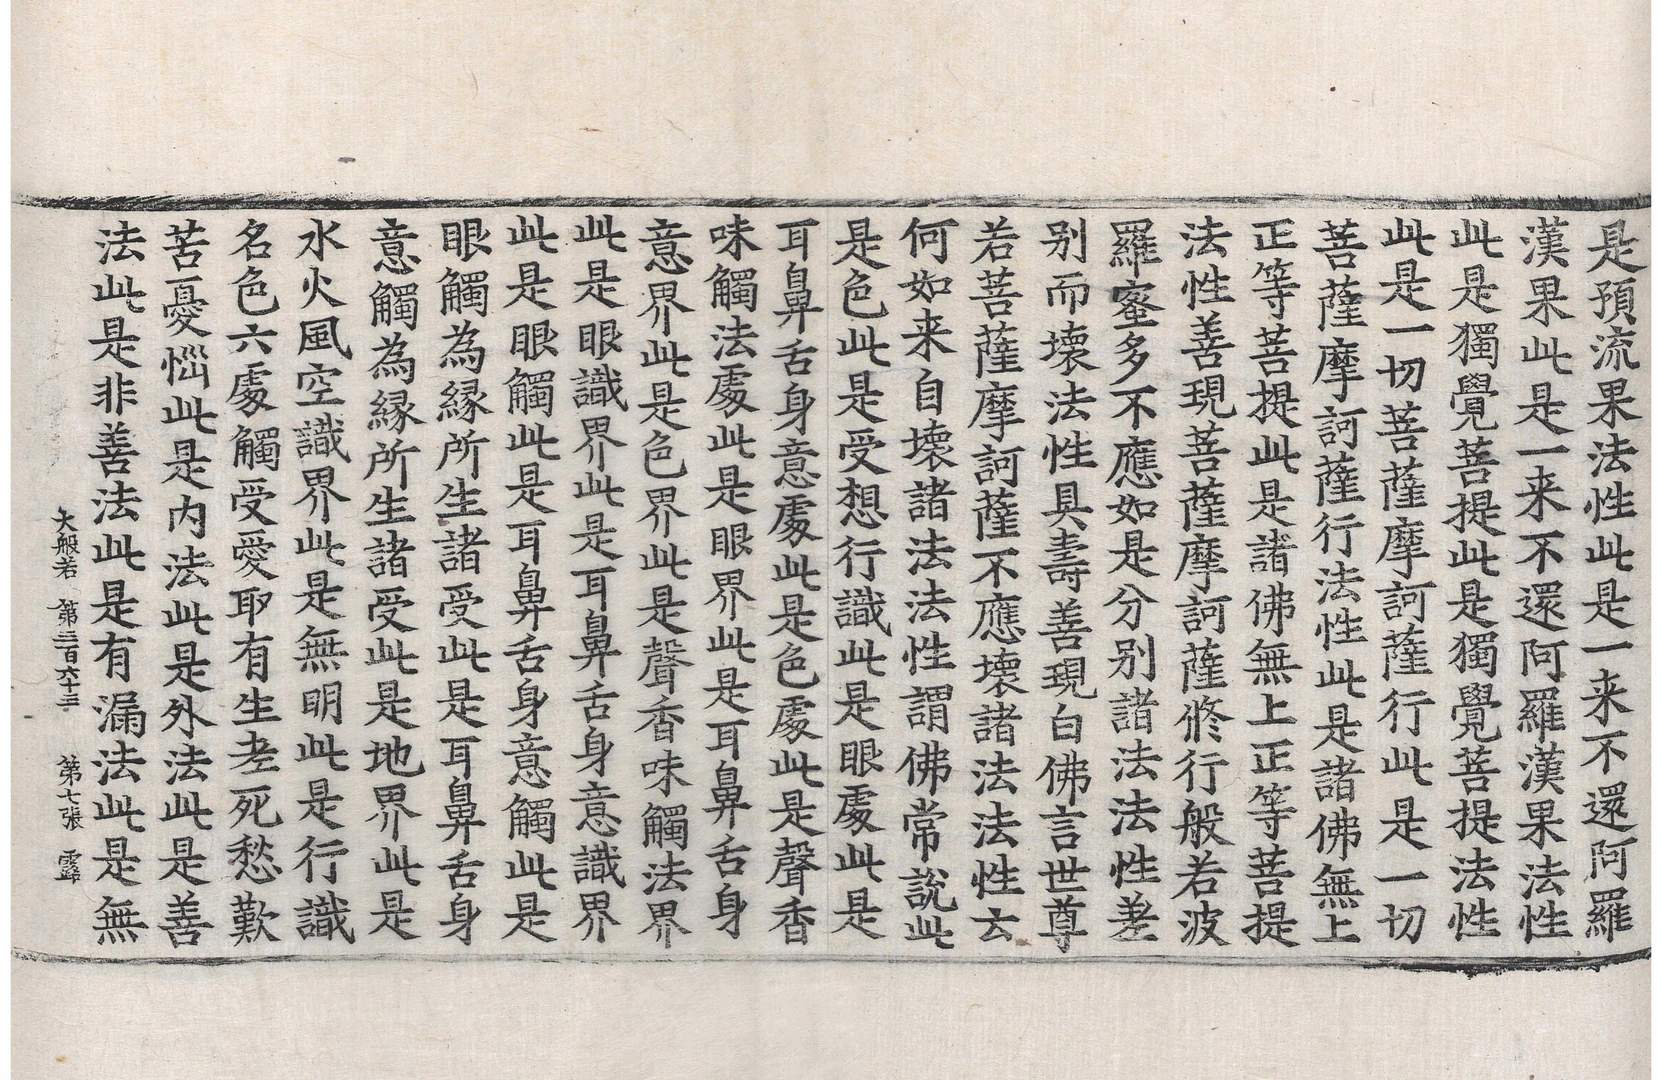 是預流果法性此是一来不還阿羅
漢果此是一来不還阿羅漢果法性
此是獨覺菩提此是獨覺菩提法性
此是一切菩薩摩訶薩行此是一切
菩薩摩訶薩行法性此是諸佛無上
正等菩提此是諸佛無上正等菩提
法性善現菩薩摩訶薩修行般若波
羅蜜多不應如是分别諸法法性差
别而壞法性具壽善現白佛言世尊
若菩薩摩訶薩不應壞諸法法性云
何如来自壞諸法法性謂佛常說此
是色此是受想行識此是眼處此是
耳鼻舌身意處此是色處此是聲香
味觸法處此是眼界此是耳鼻舌身
意界此是色界此是聲香味觸法界
此是眼識界此是耳鼻舌身意識界
此是眼觸此是耳鼻舌身意觸此是
眼觸為縁所生諸受此是耳鼻舌身
意觸為縁所生諸受此是地界此是
水火風空識界此是無明此是行識
名色六處觸受愛取有生老死愁歎
苦憂惱此是内法此是外法此是善
法此是非善法此是有漏法此是無
大般若 第三百六十三 第七張 露